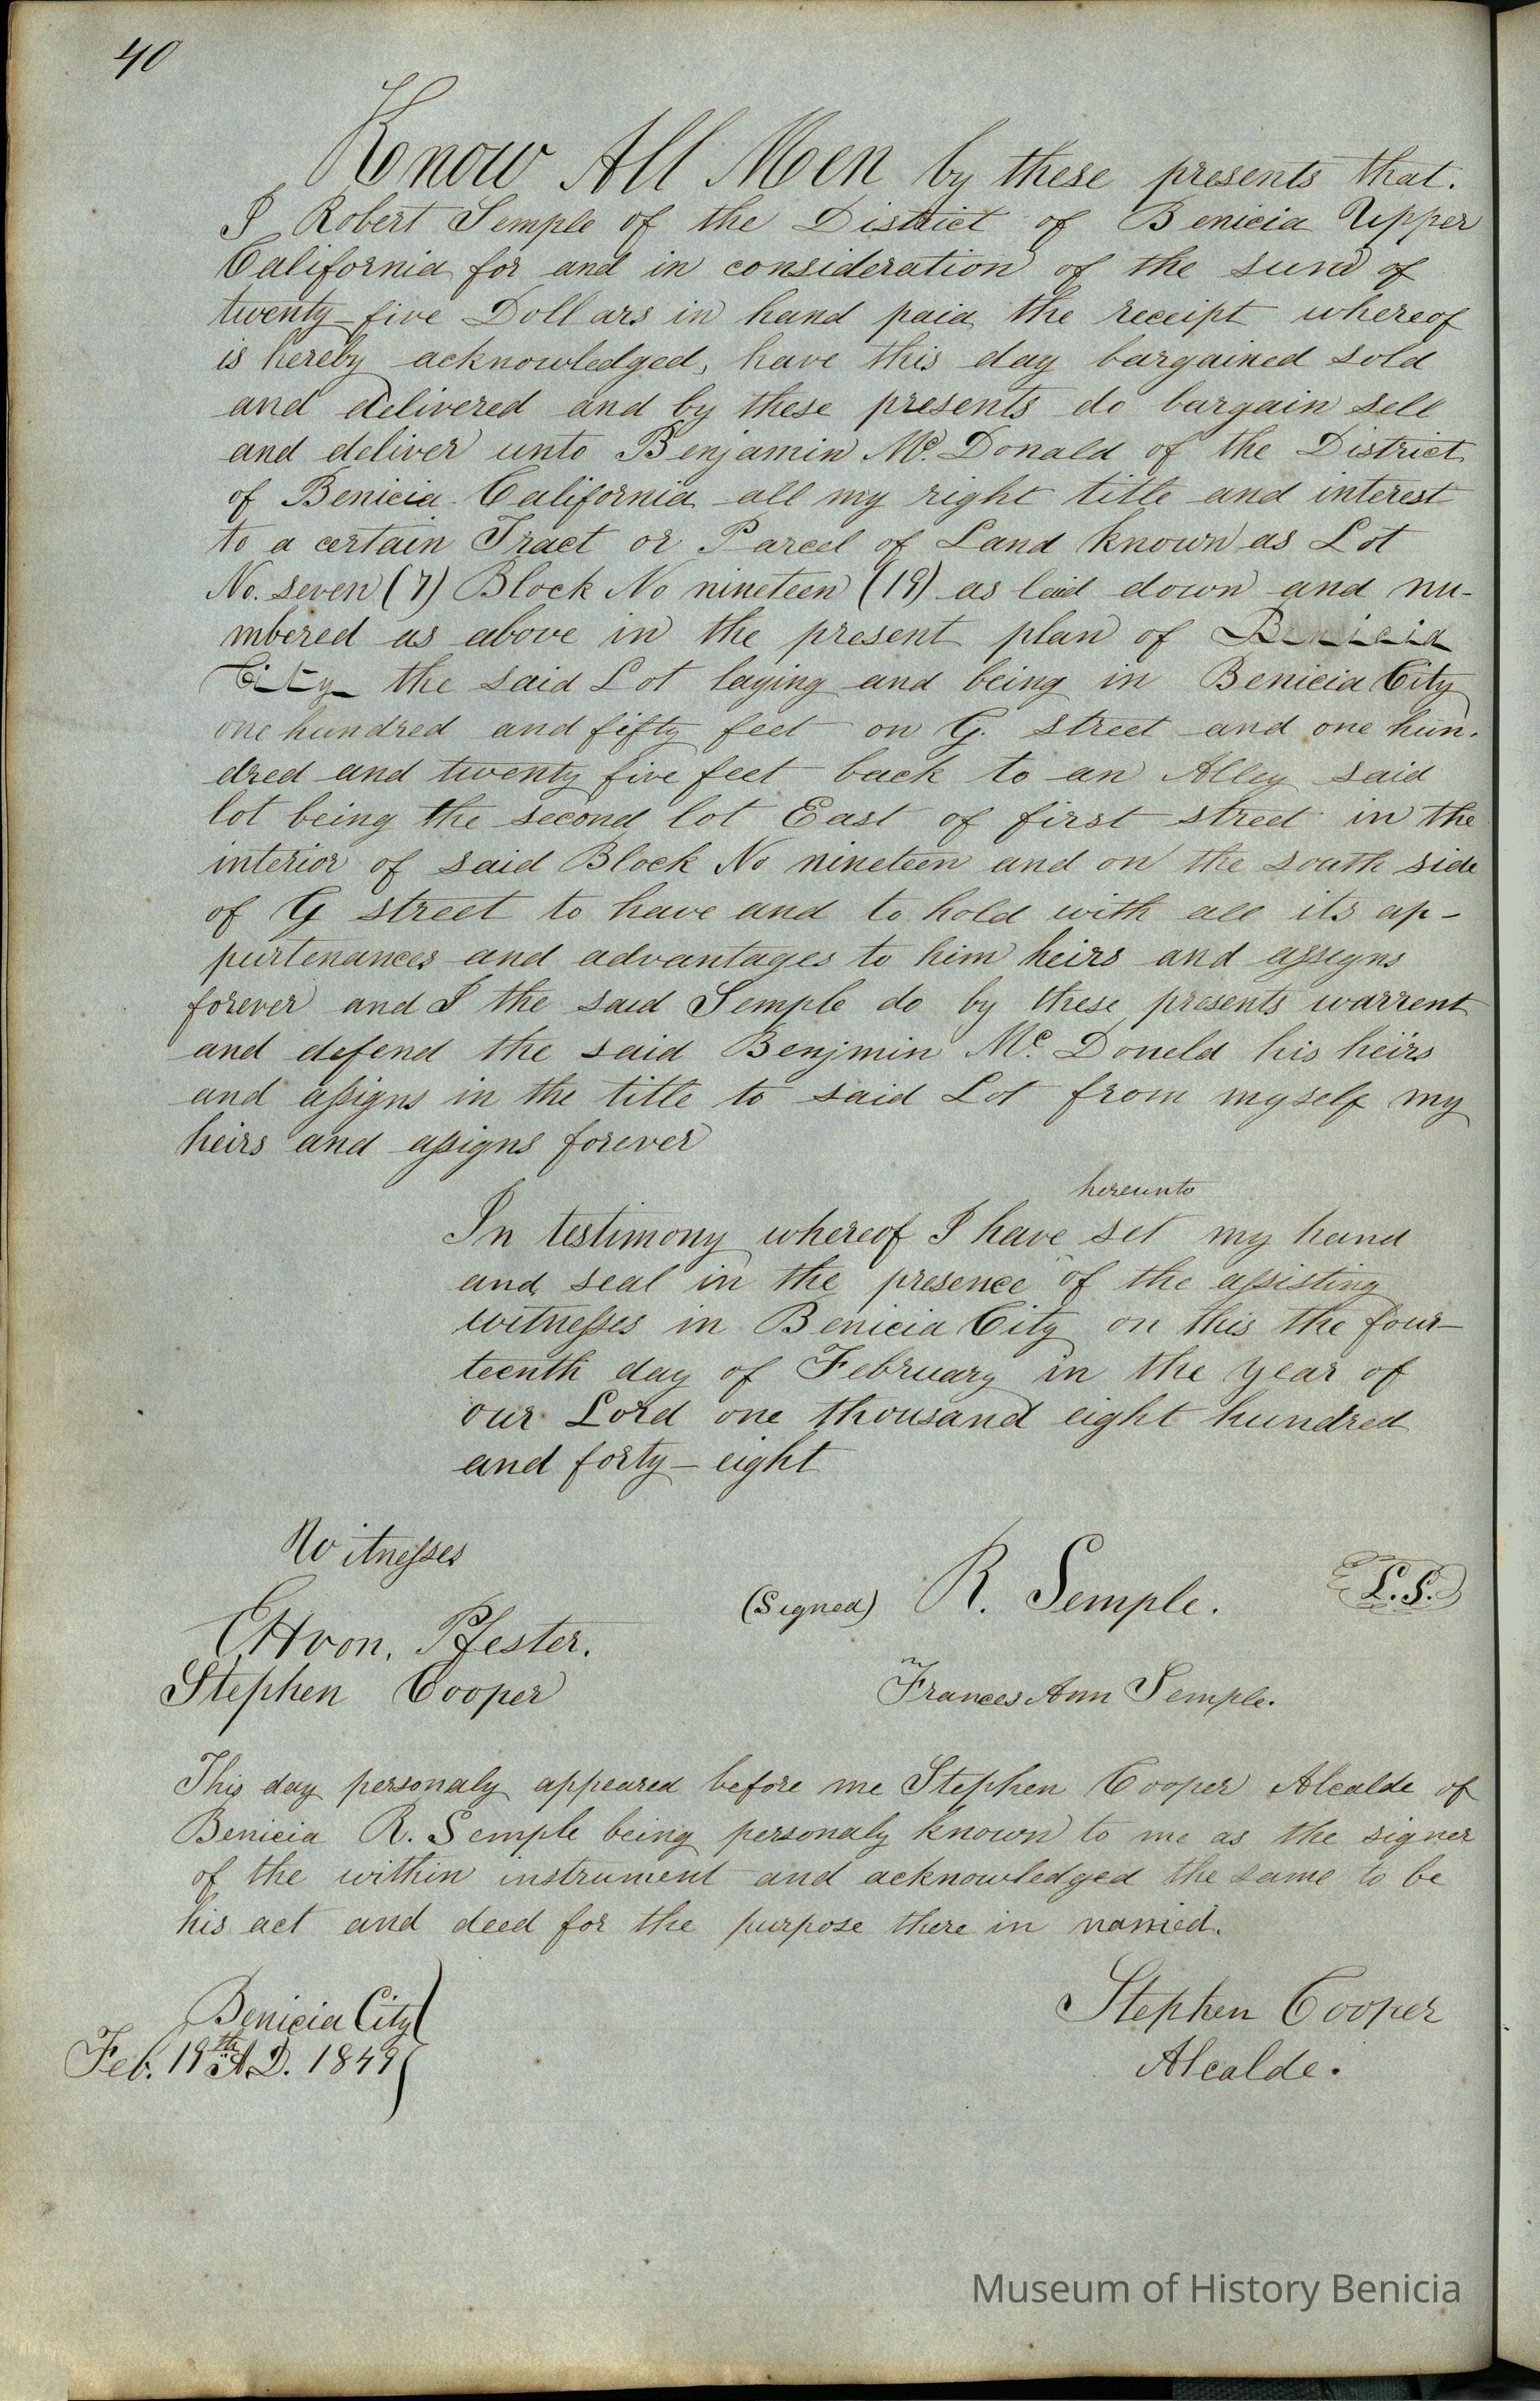 40
Know All Men by these presents that.
I Robert Semple of the District of Benicia Upper
California for and in consideration of the sum of
twenty-five Dollars in hand paid the receipt whereof
is hereby acknowledged, have this day bargained sold
and delivered and by these presents do bargain sell
and deliver unto Benjamin Mc. Donald of the District
of Benicia California all my right title and interest
to a certain Tract or Parcel of Land known as Lot
No. seven (7) Block No nineteen (19) as laid down and nu-
mbered as above in the present plan of Benicia
City the said Lot laying and being in Benicia City
one hundred and fifty feet on G. street and one hun-
dred and twenty five feet back to an Alley said
lot being the second lot East of first street in the
interior of said Block No nineteen and on the south side
of G street to have and to hold with all its ap-
purtenances and advantages to him heirs and assigns
forever and I the said Semple do by these presents warrent
and defend the said Benjmin Mc. Doneld his heirs
and assigns in the title to said Lot from myself my
heirs and assigns forever
hereunto
In testimony whereof I have set my hand
and seal in the presence of the assisting
witnesses in Benicia City on this the four-
teenth day of February in the year of
our Lord one thousand eight hundred
and forty-eight
Witnesses
(Signed) R. Semple. L.S.
E H von, Pfester.
Stephen Cooper
Frances Ann Semple.
This day personaly appeared before me Stephen Cooper Alcalde of
Benicia R. Semple being personaly known to me as the signer
of the within instrument and acknowledged the same to be
his act and deed for the purpose there in named.
Benicia City
Feb. 19th A.D. 1849
Stephen Cooper
Alcalde.
Museum of History Benicia